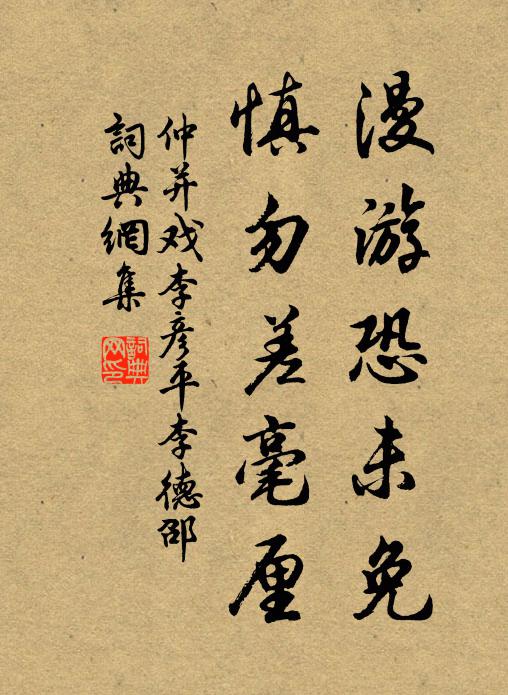 漫游恐未免
慎勿差毫厘
仲并戏李彦平李德邵
詞典網集
詞典網印